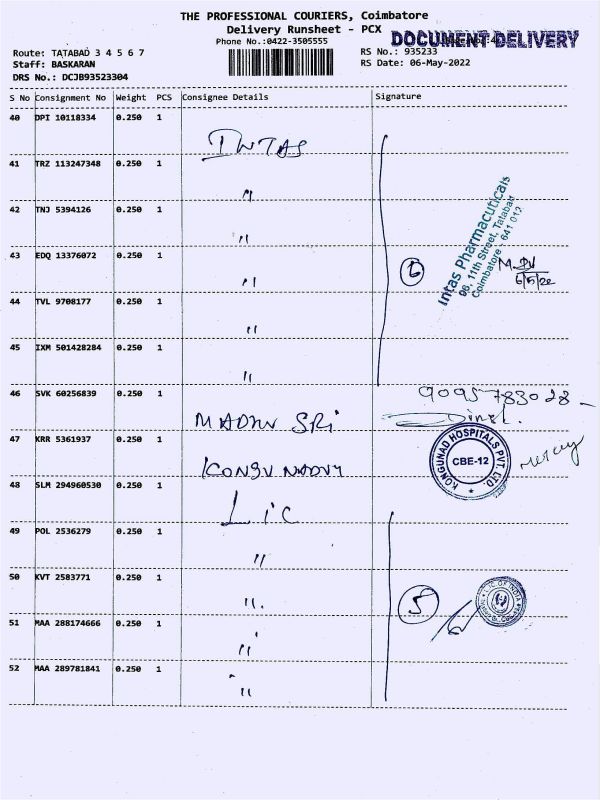 THE PROFESSIONAL COURIERS, Coimbatore
Delivery Runsheet - PCX
Phone No.:0422-3505555
DOCUMENT DELIVERY
Route: TATABAD 3 4 5 6 7
Staff: BASKARAN
DRS No.: DCJB93523304
RS No.: 935233
RS Date: 06-May-2022
S No Consignment No Weight PCS Consignee Details Signature
40 DPI 10118334 0.250 1 INTAS
41 TRZ 113247348 0.250 1 "
42 TNJ 5394126 0.250 1 "
43 EDQ 13376072 0.250 1 "
44 TVL 9708177 0.250 1 "
45 IXM 501428284 0.250 1 "
6
Intas Pharmaceuticals
96, 11th Street, Tatabad
Coimbatore - 641 012
6/5/22
46 SVK 60256839 0.250 1 MADHU SRi
9095783028
47 KRR 5361937 0.250 1 KONGUNADU
KONGUNAD HOSPITALS PVT. LTD.
CBE-12
48 SLM 294960530 0.250 1 LiC
49 POL 2536279 0.250 1 "
50 KVT 2583771 0.250 1 "
51 MAA 288174666 0.250 1 "
52 MAA 289781841 0.250 1 "
5